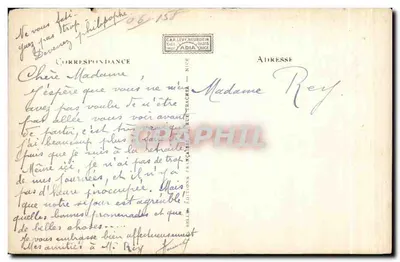 Ne vous fati-
guez pas trop
Devenez philosophe
06 150
CORRESPONDANCE
ADRESSE
Chère Madame,
J'espère que vous ne m'en
avez pas voulu de n'être
pas allée vous voir avant
de partir, c'est
j'ai beaucoup plus
que je suis à la retraite
Même ici, je n'ai pas de trop
de mes journées, et il n'y a
pas d'heure inoccupée. Mais
que notre séjour est agréable
quelles bonnes promenades et que
de belles choses....
Je vous embrasse bien affectueusement
Mes amitiés à M. Rey
Madame Rey
CARPHIL